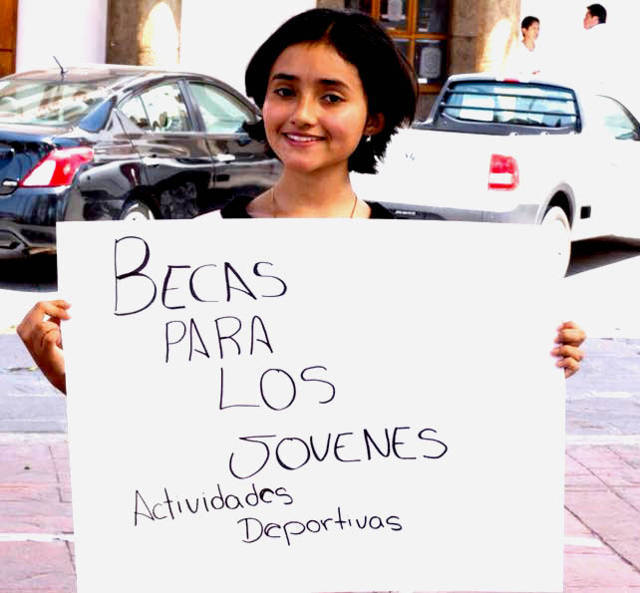 BECAS
PARA
LOS
JOVENES
Actividades
Deportivas